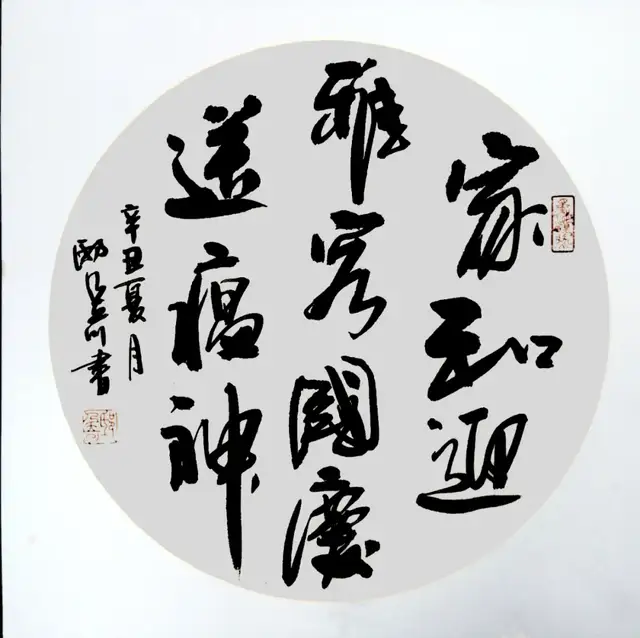 家和迎
雅客國慶
送瘟神
辛丑夏月
川書